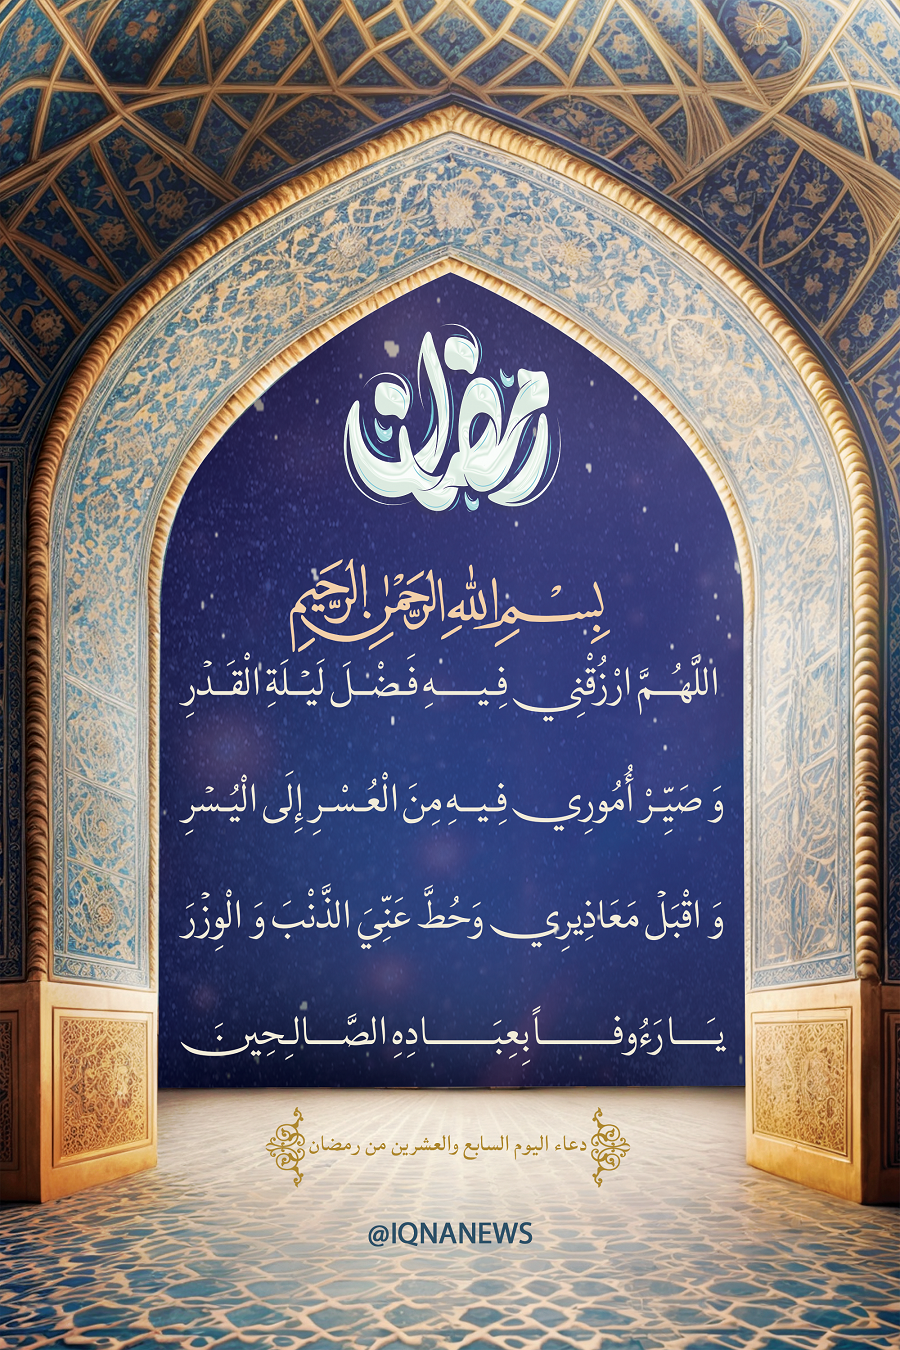 رمضان
بِسْمِ اللهِ الرَّحْمٰنِ الرَّحِيمِ
اللَّهُمَّ ارْزُقْنِي فِيهِ فَضْلَ لَيْلَةِ الْقَدْرِ
وَ صَيِّرْ أُمُورِي فِيهِ مِنَ الْعُسْرِ إِلَى الْيُسْرِ
وَ اقْبَلْ مَعَاذِيرِي وَحُطَّ عَنِّيَ الذَّنْبَ وَ الْوِزْرَ
يَا رَءُوفاً بِعِبَادِهِ الصَّالِحِينَ
دعاء اليوم السابع والعشرين من رمضان
@IQNANEWS